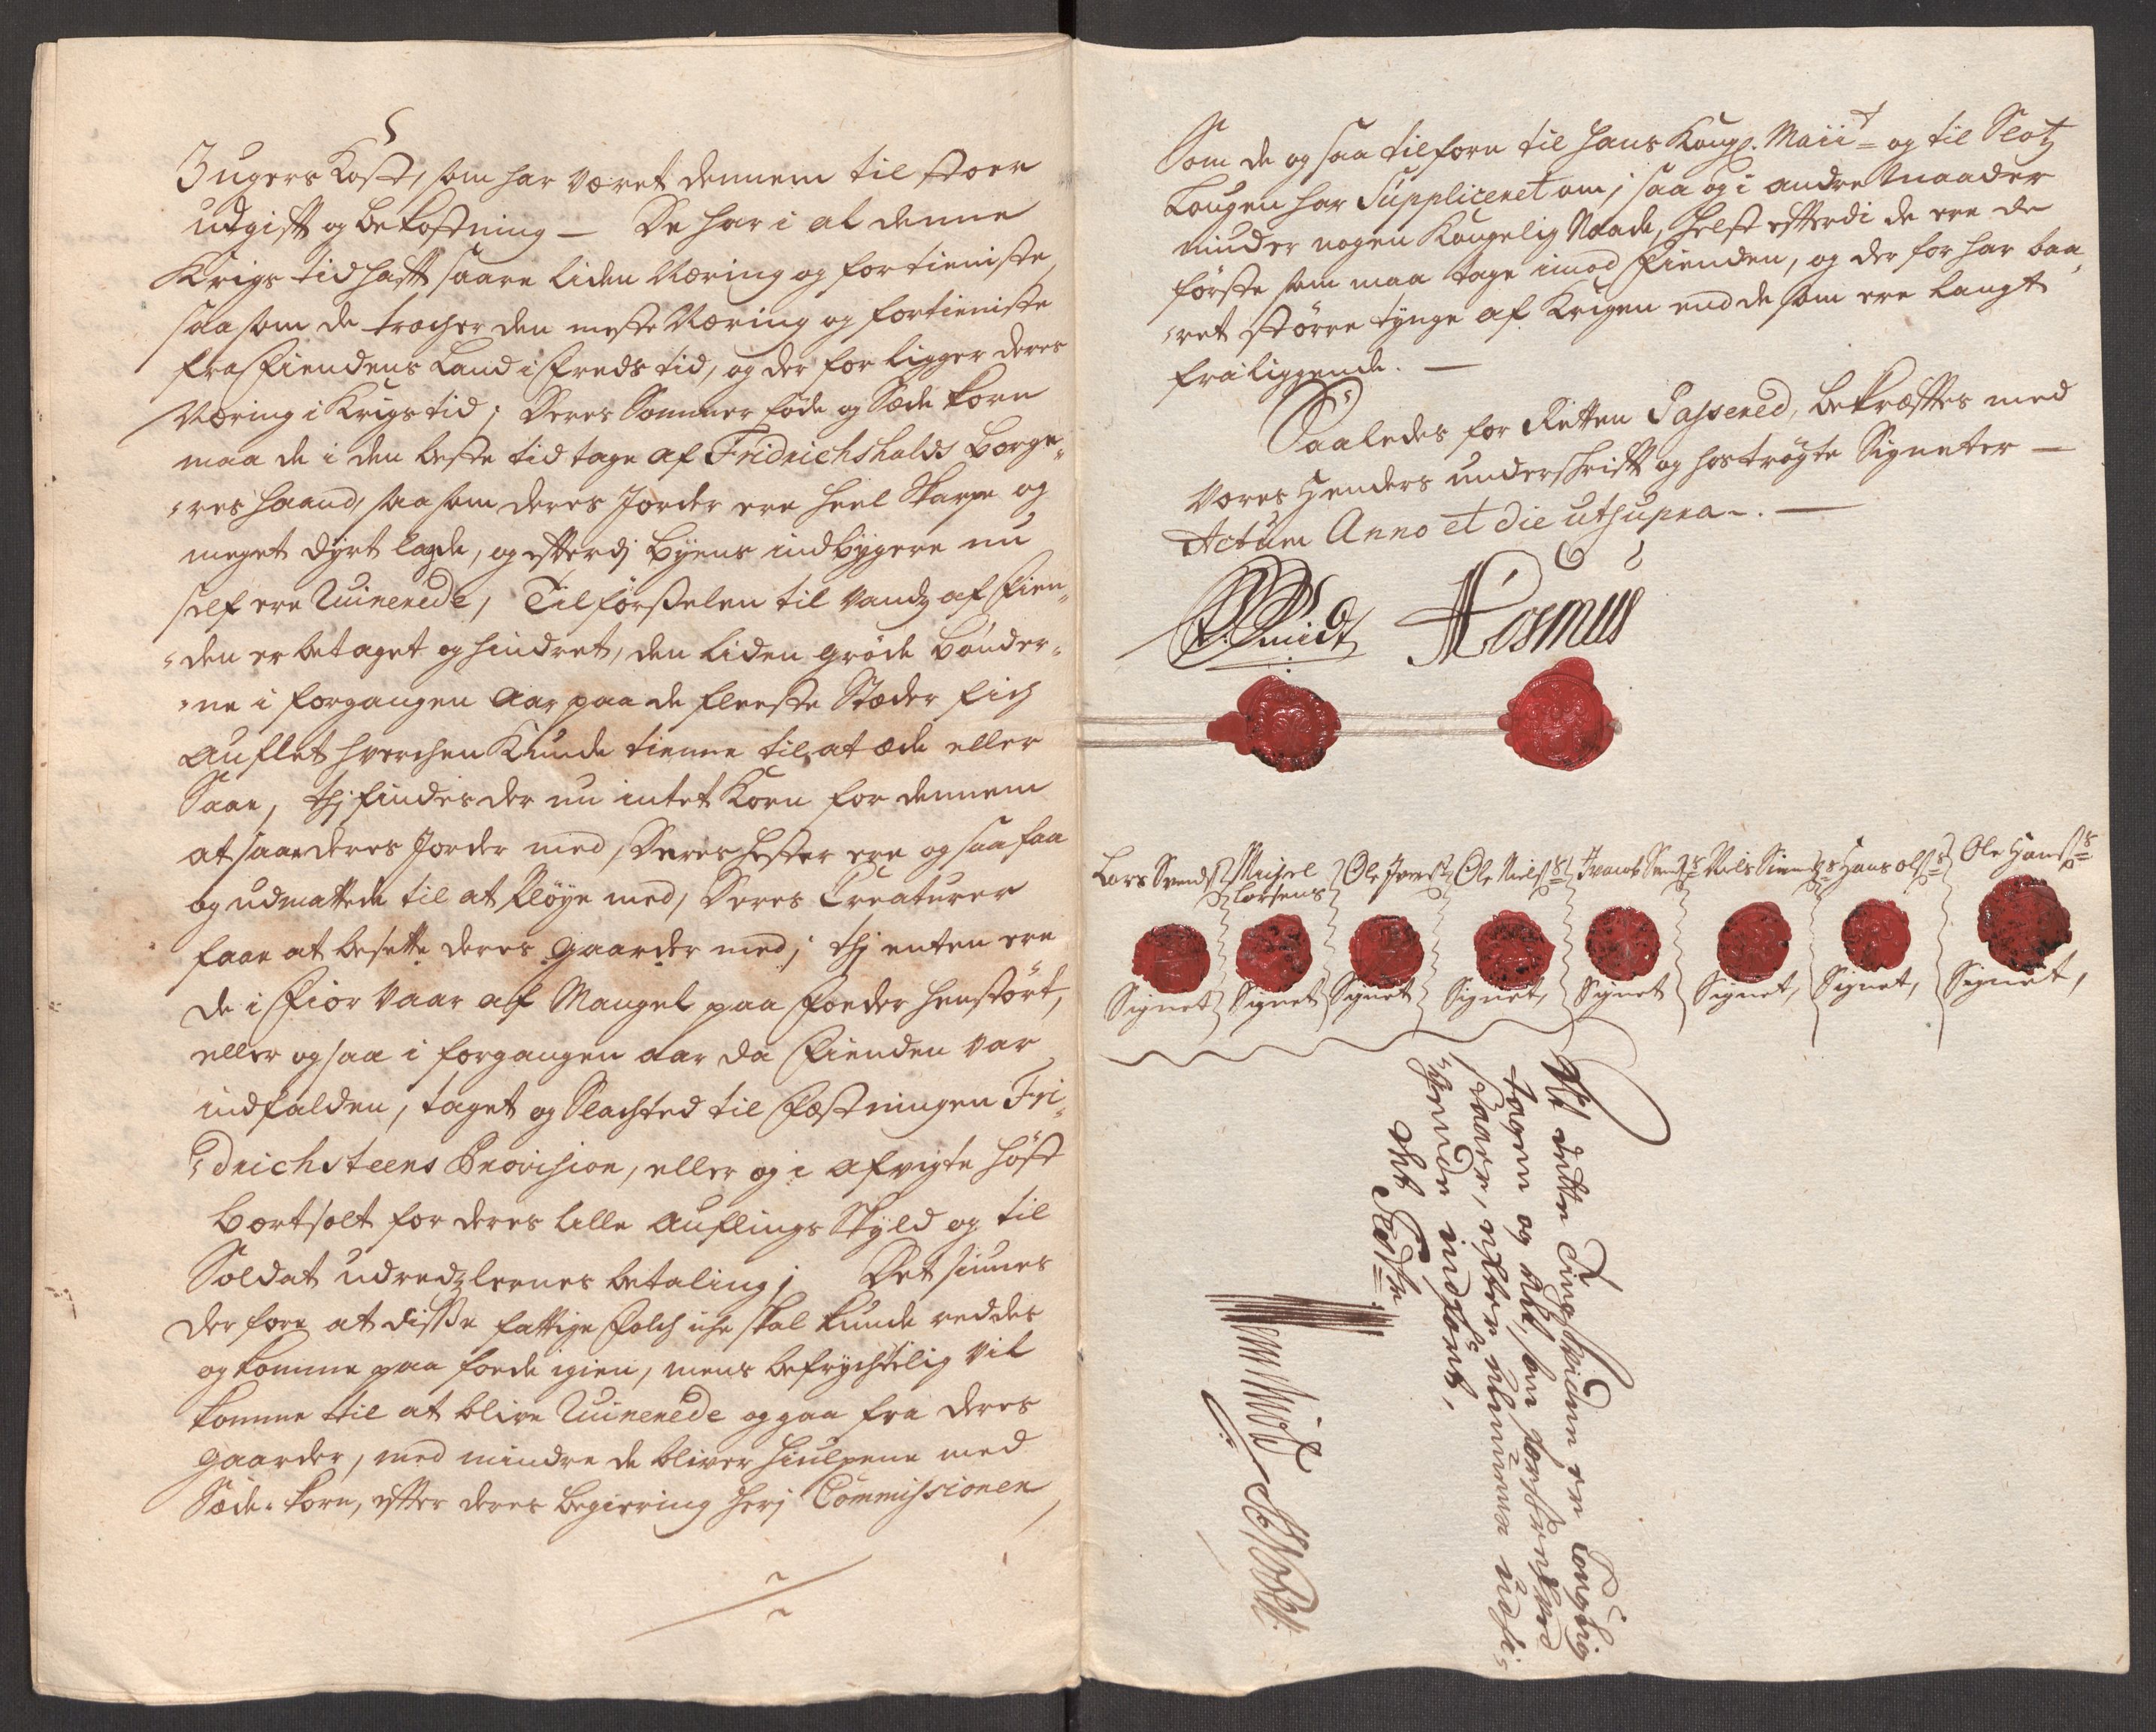 3 ugers Kost, som har været dennem til stoer
udgifft og bekostning — De har i al denne
Krigs tid hafft saare liden Næring og fortieniste,
saa som de tracher den meste Næring og fortieniste
fra Fiendens Land i Freds tid, og der for ligger deres
Næring i Krigs tid; Deres Sommer føde og Sæde korn
maa de i den beste tid tage af Fridrichshalds borge„
„res haand, saa som deres Jorder ere heel skarpe og
meget dyrt lagde, og efterdj byens indbygere nu
self ere Ruinerede, Tilførselen til vandz af Fien„
„den er betaget og hindret, den liden grøde bønder„
„ne i forgangen Aar paa de fleeste Stæder fich
auflet hverchen Kunde tienne til at æde eller
Saae, thj findes der nu intet Korn for dennem
at saae deres Jorder med, Deres hester ere og saa faa
og udmattede til at pløye med, Deres Creaturer
faae at besette deres gaarder med; thj enten ere
de i Fior vaar af Mangel paa Foeder henstört,
eller og saa i forgangen aar da Fienden var
indfalden, taget og Slachted til Fæstningen Fri„
„drichsteens Provision, eller og i afvigte høst
bortsolt for deres lille auflings skyld og til
Soldat udredzlernes betaling; Det siunes
derfore at disse fattige Folch iche skal kunde reddes
og komme paa foede igien, mens befrychtelig vil
komme til at blive Ruinerede og gaa fra deres
gaarder, med mindre de bliver hiulpene med
Sæde-korn, efter deres begiering herj Commissionen,
Som de og saa tilforn til hans Kongl. Maiit= og til Slotz
Lougen har Suppliceret om; saa og i andre Maader
niuder nogen Kongelig Naade, helst efterdi de ere de
første som maa tage imod Fienden, og der for har baa„
„ret större tynge af Krigen end de som ere langt
fraliggende. —
Saaledes for Retten Passered, bekræfftes med
vores henders underschrifft og hoströgte Signeter —
Actum Anno et die utsupra. —
Smidt Rosmus
Lars Svends: Michel Larsens Ole Ivers: Ole Niels: Svends: Niels Simens: Hans Ols: Ole Hans:
Signet Signet Signet Signet, Signet Signet, Signet, Signet,
At dette Tingsvidne er Lovlig
tagen og
svarer, efter
hende indført,